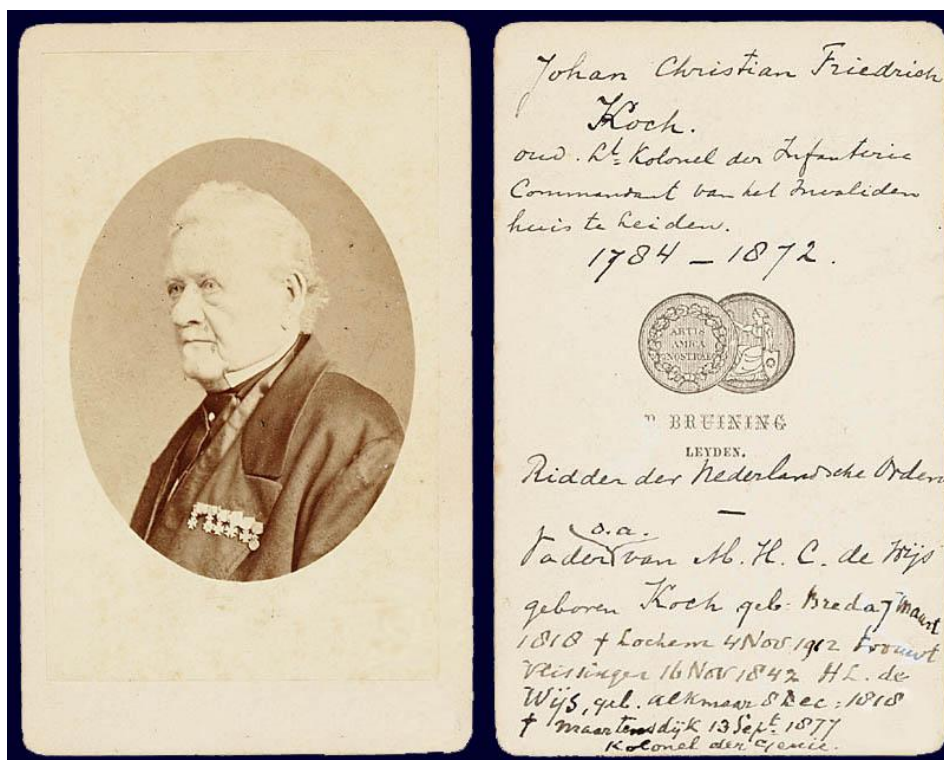 Johan Christian Friedrich
Koch.
oud. Lt. Kolonel der Infanterie
Commandant van het Invaliden
huis te Leiden.
1784 – 1872.
ARTIS
AMICA
NOSTRAE
BRUINING
LEYDEN.
Ridder der Nederlandsche Orden
—
o.a.
Vader van M. H. C. de Wijs
geboren Koch geb: Breda 7 Maart
1818 † Lochem 4 Nov 1912 trouwt
Vlissingen 16 Nov 1842 H L. de
Wijs, geb. Alkmaar 8 Dec: 1818
† Maartensdijk 13 Sept. 1877
Kolonel der Genie.